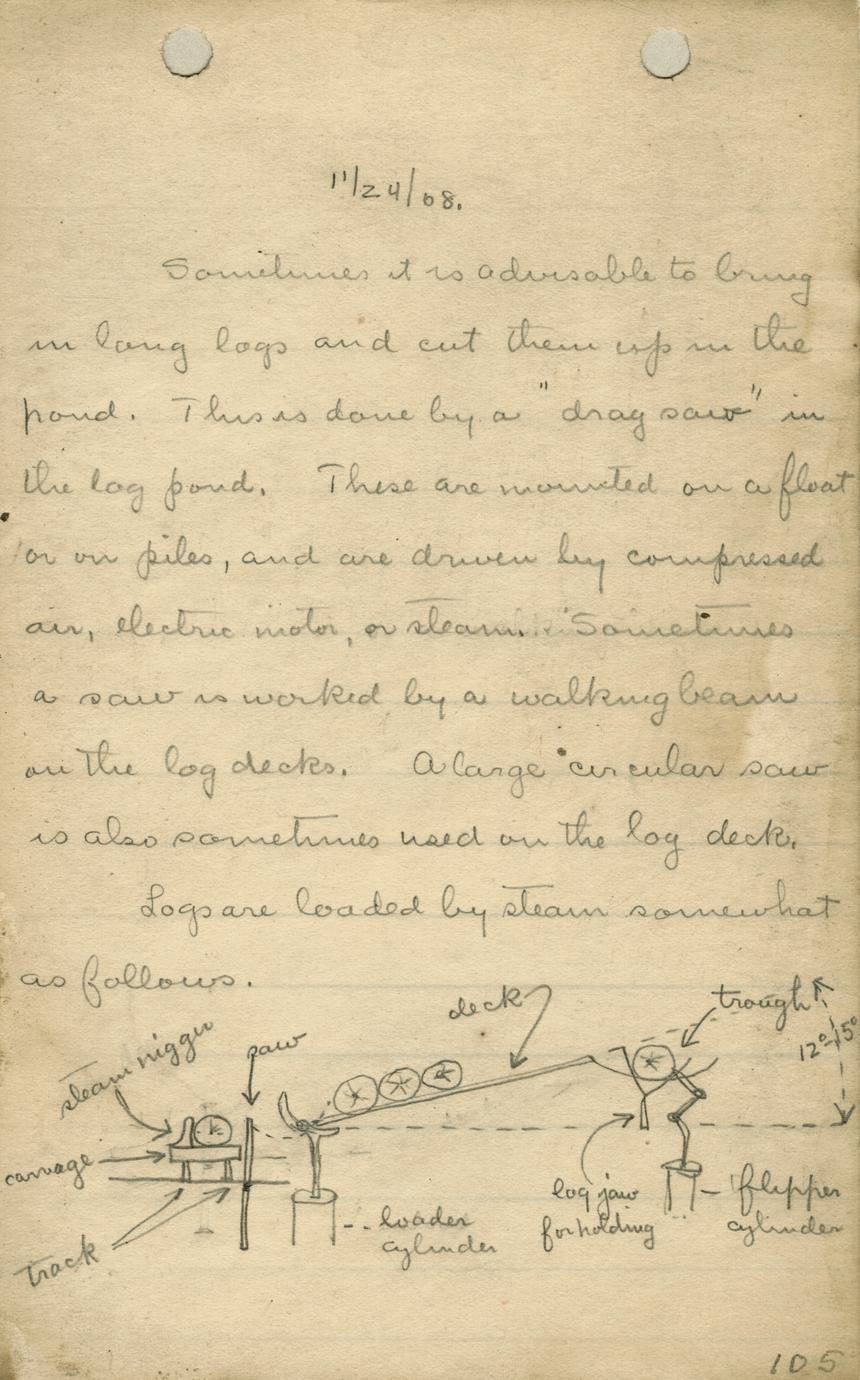 11/24/08.
Sometimes it is advisable to bring
in long logs and cut them up in the
pond. This is done by a "drag saw" in
the log pond. These are mounted on a float
or on piles, and are driven by compressed
air, electric motor, or steam. Sometimes
a saw is worked by a walking beam
on the log decks. A large circular saw
is also sometimes used on the log deck.
Logs are loaded by steam somewhat
as follows.
deck
trough
12°-15°
steam nigger
saw
carriage
track
loader
cylinder
log jaw
for holding
flipper
cylinder
105